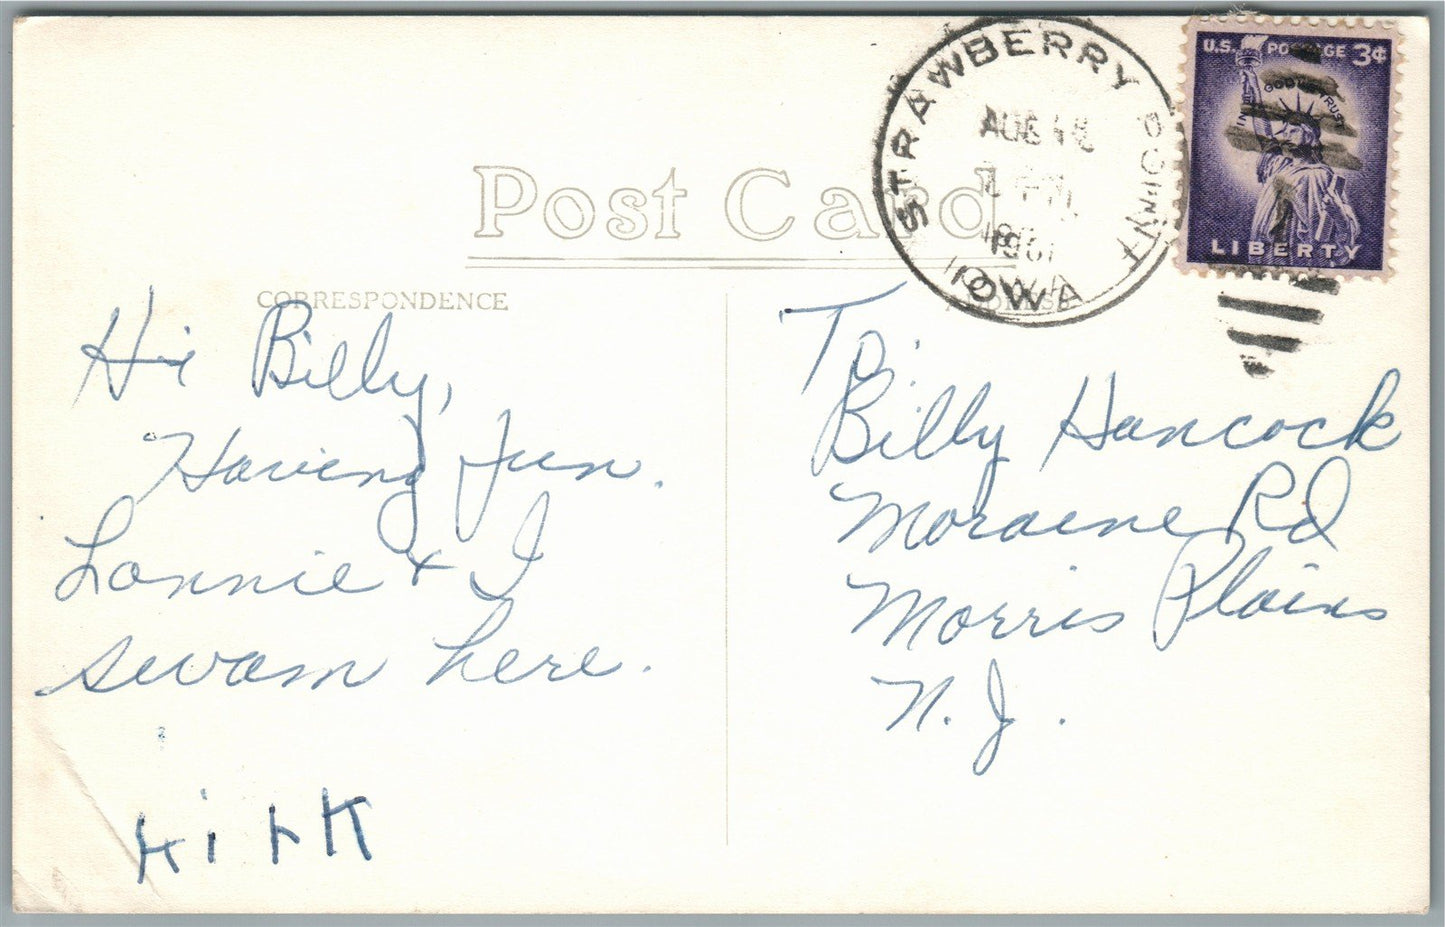 STRAWBERRY POINT
AUG 18
1961
IOWA
U.S. POSTAGE 3¢
IN GOD WE TRUST
LIBERTY
Post Card
CORRESPONDENCE
Hi Billy,
Having fun.
Lonnie + I
swam here.
To:
Billy Hancock
Moraine Rd
Morris Plains
N. J.